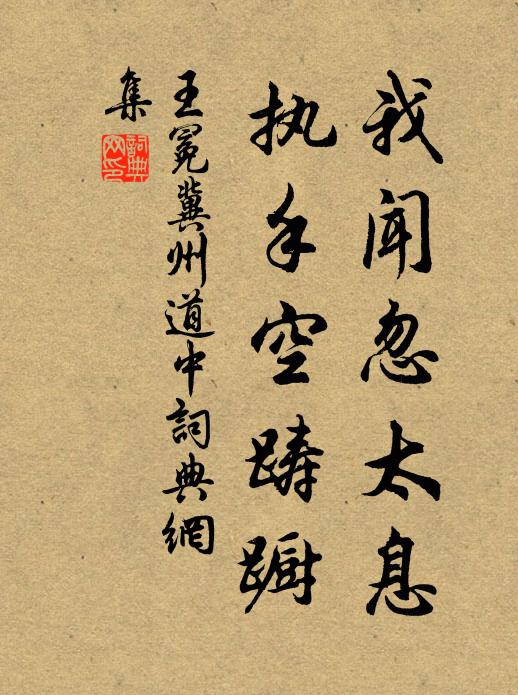 我闻忽太息
执手空踌蹰
王冕冀州道中詞典網
集
詞典網印